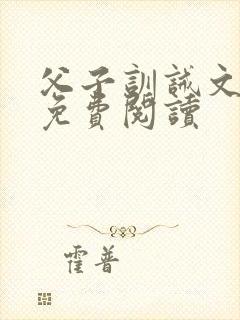 父子訓誡文
免費閱讀
霍普